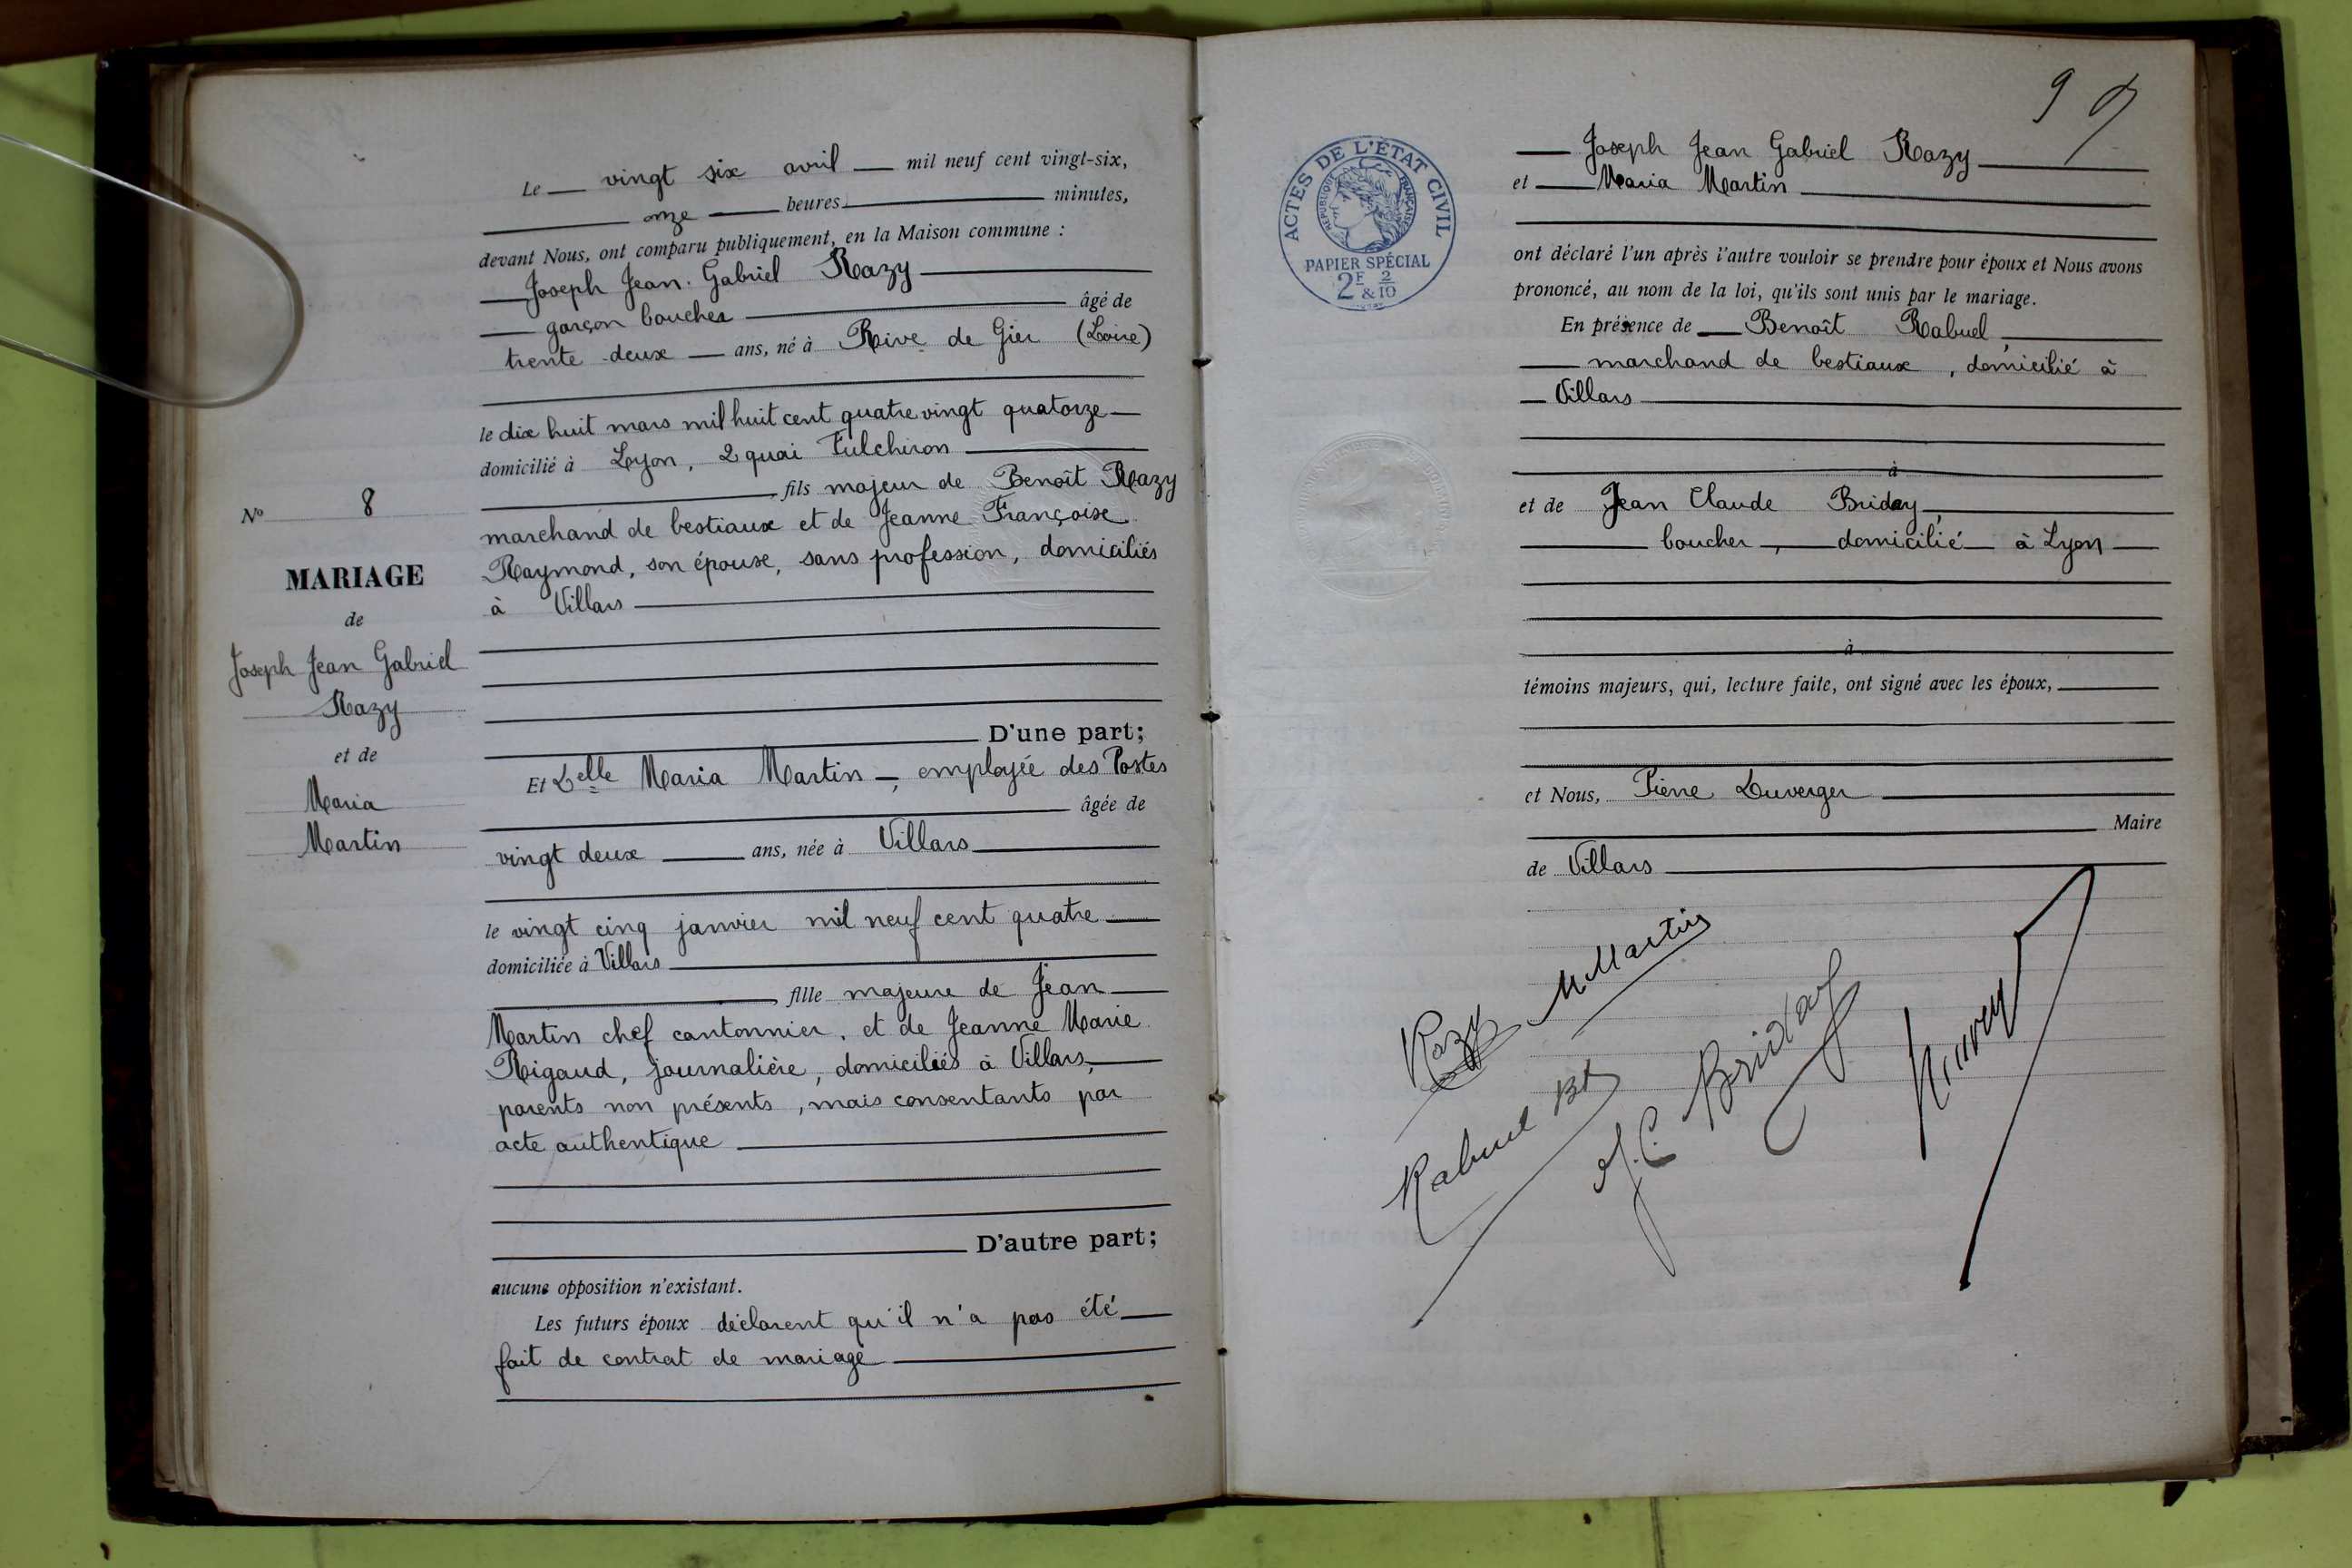 Le vingt six avril mil neuf cent vingt-six,
onze heures minutes,
devant Nous, ont comparu publiquement, en la Maison commune :
Joseph Jean Gabriel Razy
garçon boucher âgé de
trente deux ans, né à Rive de Gier (Loire)
le dix huit mars mil huit cent quatre vingt quatorze
domicilié à Lyon, 2 quai Fulchiron
fils majeur de Benoît Razy
marchand de bestiaux et de Jeanne Françoise
Raymond, son épouse, sans profession, domiciliés
à Villars
D'une part;
Et Delle Maria Martin, employée des Postes
âgée de
vingt deux ans, née à Villars
le vingt cinq janvier mil neuf cent quatre
domiciliée à Villars
fille majeure de Jean
Martin chef cantonnier, et de Jeanne Marie
Rigaud, journalière, domiciliés à Villars,
parents non présents, mais consentants par
acte authentique
D'autre part;
aucune opposition n'existant.
Les futurs époux déclarent qu'il n'a pas été
fait de contrat de mariage
No 8
MARIAGE
de
Joseph Jean Gabriel
Razy
et de
Maria
Martin
9
ACTES DE L'ÉTAT CIVIL
RÉPUBLIQUE FRANÇAISE
PAPIER SPÉCIAL
2F & 2/10
Joseph Jean Gabriel Razy
et Maria Martin
ont déclaré l'un après l'autre vouloir se prendre pour époux et Nous avons
prononcé, au nom de la loi, qu'ils sont unis par le mariage.
En présence de Benoît Rabuel,
marchand de bestiaux, domicilié à
Villars
à
et de Jean Claude Briday,
boucher, domicilié à Lyon
à
témoins majeurs, qui, lecture faite, ont signé avec les époux,
et Nous, Pierre Duverger
Maire
de Villars
Razy M Martin
Rabuel Bt J.C. Briday